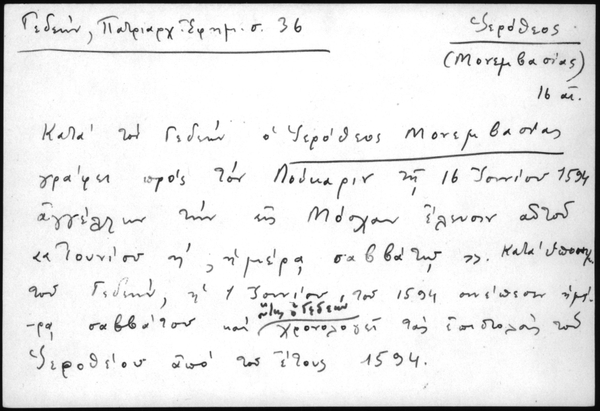 Γεδεών, Πατριαρχ. Ἐφημ. σ. 36
Ἱερόθεος
(Μονεμβασίας)
16 αἰ.
Κατά τόν Γεδεών ὁ Ἱερόθεος Μονεμβασίας
γράφει πρός τόν Λούκαριν τῇ 16 Ἰουνίου 1594
ἀγγέλλων τήν εἰς Μόσχαν ἔλευσιν αὐτοῦ
«α Ἰουνίου ἡ, ἡμέρᾳ σαββάτῳ». Κατά
τοῦ Γεδεών, ἡ 1 Ἰουνίου τοῦ 1594 συνέπεσεν ἡμέ-
ρᾳ σαββάτου καί οὕτως ὁ Γεδεών χρονολογεῖ τάς ἐπιστολάς τοῦ
Ἱεροθέου ἀπό τοῦ ἔτους 1594.